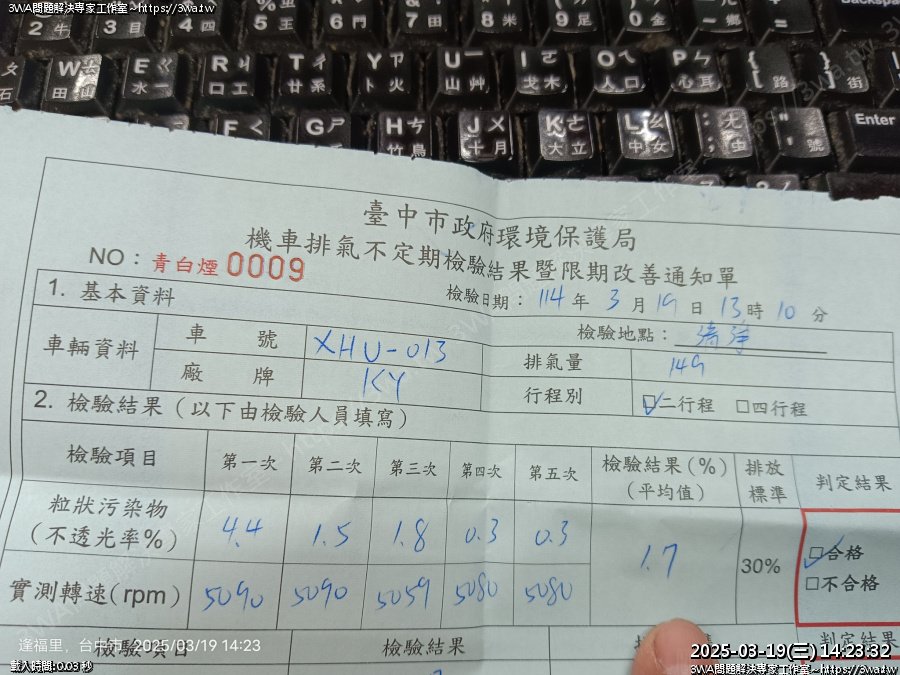 3WA問題解決專家工作室~https://3wa.tw
臺中市政府環境保護局
機車排氣不定期檢驗結果暨限期改善通知單
NO：青白煙0009
檢驗日期：114年3月19日13時10分
1. 基本資料
檢驗地點：
車輛資料
車號 XHU-013
排氣量 149
廠牌 KY
行程別 ☑二行程 □四行程
2. 檢驗結果（以下由檢驗人員填寫）
檢驗項目 第一次 第二次 第三次 第四次 第五次 檢驗結果(%)（平均值） 排放標準 判定結果
粒狀污染物（不透光率%） 4.4 1.5 1.8 0.3 0.3 1.7 30% ☑合格
□不合格
實測轉速(rpm) 5090 5090 5059 5080 5080
檢驗項目 檢驗結果 判定結果
逢福里，台中市 2025/03/19 14:23
載入時間:0.03 秒
2025-03-19(三) 14:23:32
3WA問題解決專家工作室~https://3wa.tw
W
田
E
水
R
口
T
廿
Y
卜
U
山
I
戈
O
人
P
心
F
G
H
竹
J
十
K
大
L
中
Enter